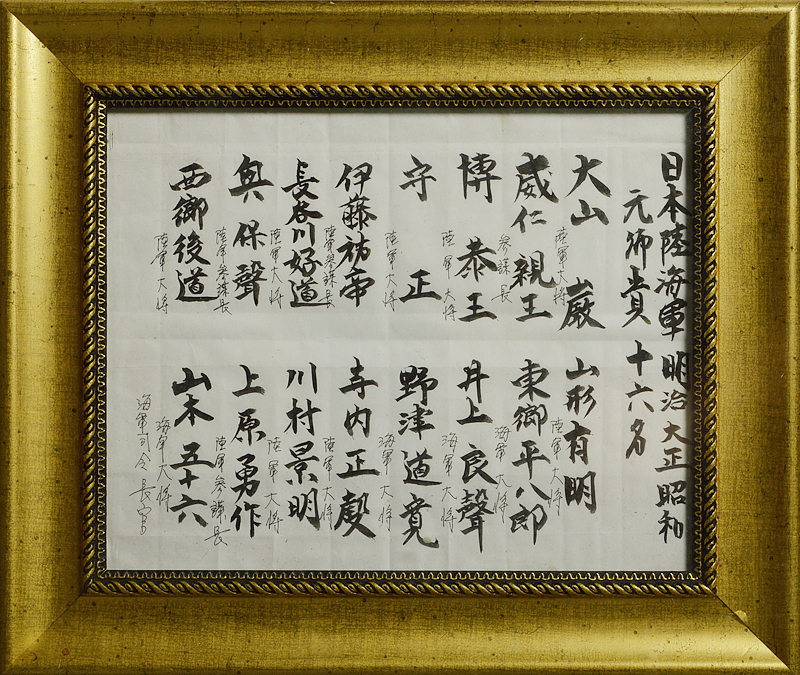 日本陸海軍明治大正昭和
元帅貴十六名
大山 巌
陸軍大将
山形有明
陸軍大将
威仁親王
参謀長
東郷平八郎
海軍大将
博恭王
陸軍大将
井上良聲
海軍大将
守 正
陸軍大将
野津道寛
海軍大将
伊藤祐帝
陸軍参謀長
寺内正毅
陸軍大将
長谷川好道
陸軍大将
川村景明
陸軍大将
奥保聲
陸軍参謀長
上原勇作
陸軍参謀長
西郷後道
陸軍大将
山木五十六
海軍大将
海軍司令長官